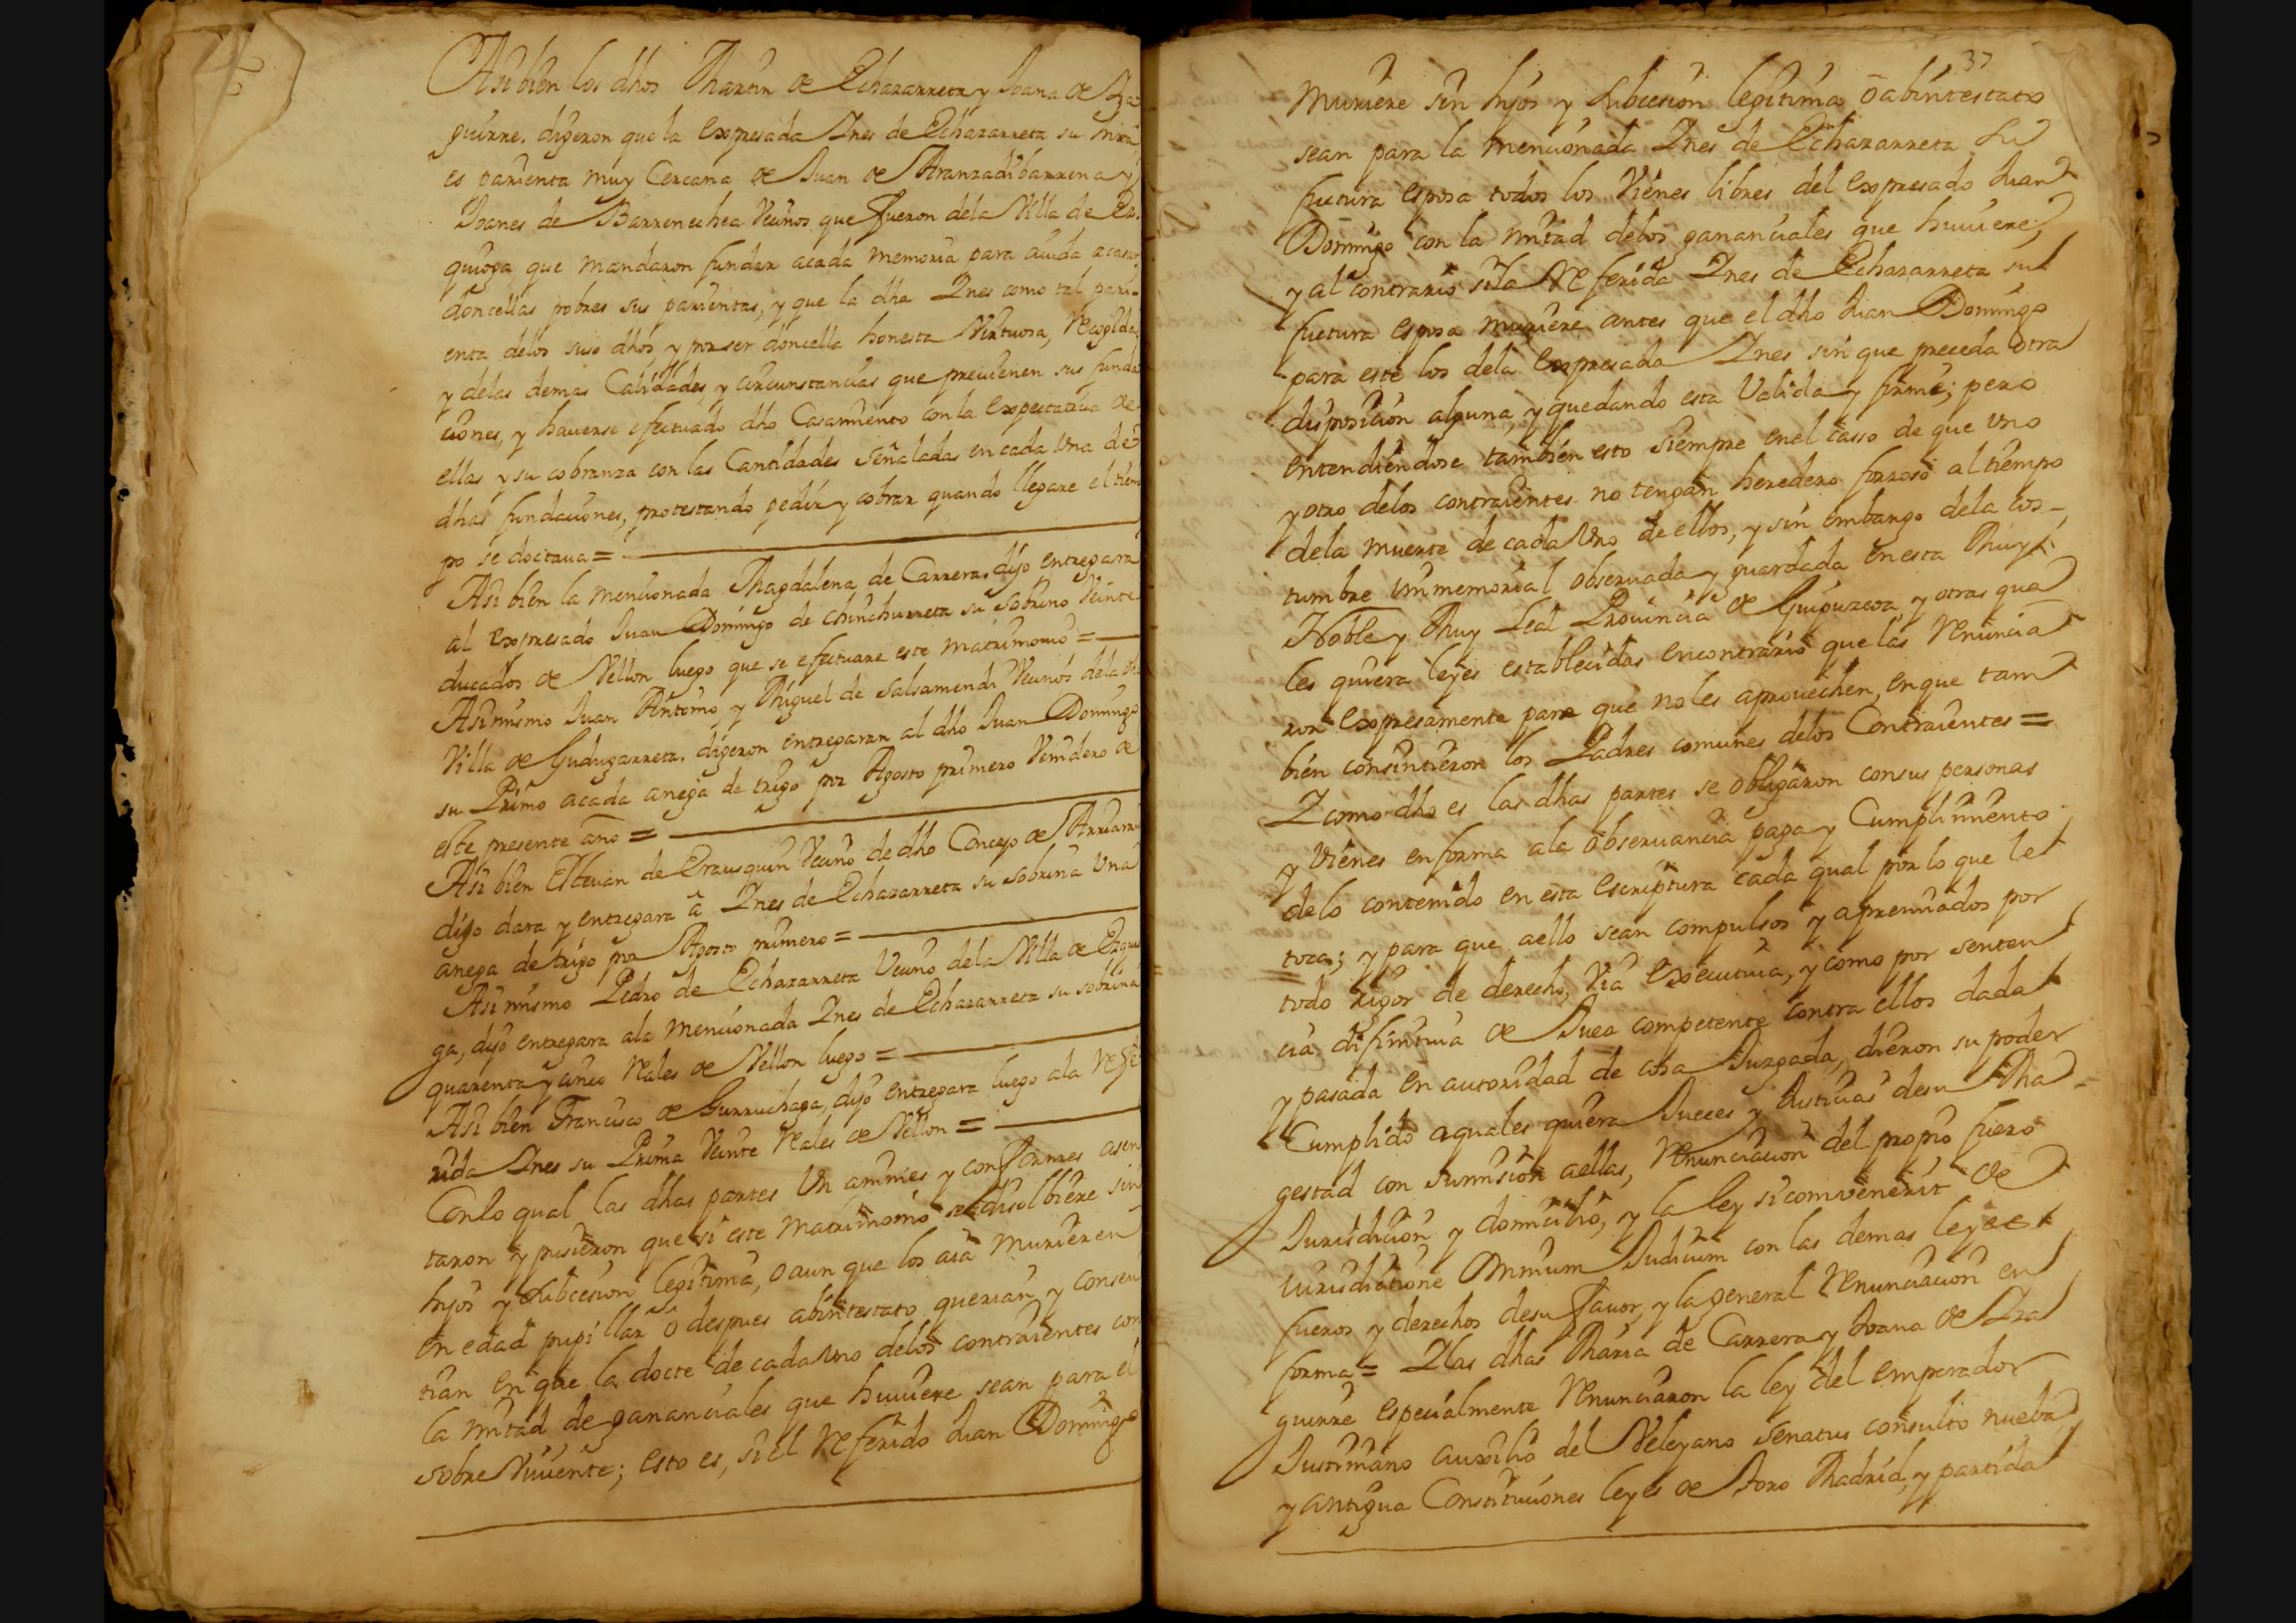 Asi bien los dhos Martin de Echazarreta y Joana de Yza
guirre. digeron que la expresada Ynes de Echazarreta su hixa
es parienta muy cercana de Juan de Aranzadibarrena y
Joanes de Barrenechea vecinos que fueron dela Villa de Ez
quioga que mandaron fundar acada memoria para aiuda acasar
doncellas pobres sus parientas, y que la dha Ynes como tal pari-
enta delos suso dhos, y por ser doncella honesta virtuosa, recogida
y delas demas Calidades, y circunstancias que preuienen sus funda
ciones, y hauerse efectuado dho Casamiento con la expectatiua de
ellas y su cobranza con las Cantidades señaladas en cada una de
dhas fundaciones, protestando pedir y cobrar quando llegare el tiem
po se docitaua =
Asi bien la mencionada Magdalena de Carrera. dijo entregara
al expresado Juan Domingo de chinchurreta su sobrino veinte
ducados de Vellon luego que se efectuare este matrimonio =
Asimismo Juan Antonio y Miguel de salsamendi vecinos dela dha
Villa de Gudugarreta. digeron entregaran al dho Juan Domingo
su Primo acada anega de trigo por Agosto primero venidero de
este presente año =
Asi bien Esteuan de Erausquin vecino de dho Concejo de Arriaran
dijo dara y entregara â Ynes de Echazarreta su sobrina una
anega de trigo por Agosto primero =
Asimismo Pedro de Echazarreta vecino dela Villa de Ezquio
ga, dijo entregara ala mencionada Ynes de Echazarreta su sobrina
quarenta y cinco reales de Vellon luego =
Asi bien Francisco de Gurruchaga, dijo entregara luego ala refe
rida Ynes su Prima veinte reales de Vellon =
Conlo qual las dhas partes vn animes y conformes asen
taron y pusieron que si este matrimonio se disolbiere sin
hijos y subcesion legitima, o aun que los aia murieren
en edad pupillar o despues abintestato querian y consen
tian en que la docte de cada vno delos contraientes con
la mitad de gananciales que huuiere sean para el
sobreviuiente; esto es, si el referido Juan Domingo
37
muriere sin hijos y subcesion legitima o abintestato
sean para la mencionada Ynes de Echazarreta su
futura esposa todos los vienes libres del expresado Juan
Domingo con la mitad delos gananciales que huuiere,
y al contrario si la referida Ynes de Echazarreta su
futura esposa muriere antes que el dho Juan Domingo
para este los dela expresada Ynes sin que preceda otra
disposicion alguna, y quedando esta valida y firme; pero
entendiendose tambien esto siempre enel casso de que vno
y otro delos contraientes no tengan heredero forzoso al tiempo
dela muerte de cada vno de ellos, y sin embargo dela cos-
tumbre immemorial obseruada y guardada en esta Muy
Noble y Muy Leal Prouincia de Guipuzcoa y otras qua
les quiera leyes establecidas encontrario que las renuncia
ron expresamente para que no les aprouechen, en que tam
bien consintieron los Padres comunes delos Contraientes =
Y como dho es las dhas partes se obligaron consus personas
y vienes enforma ala obseruancia paga y Cumplimiento
delo contenido en esta escriptura cada qual por lo que le
toca; y para que aello sean compulsos y apremiados por
todo rigor de derecho, via executiua, y como por senten
cia difinitiua de Juez competente contra ellos dada
y pasada en autoridad de cosa Juzgada, dieron su poder
Cumplido aquales quiera Jueces y Justicias desu Ma-
gestad con sumision aellas, renunciacion del propio fuero
Jurisdicion y domicilio, y la ley sicomvenerit de
iurisdictione omnium Judicum con las demas leyes
fueros y derechos desu fauor, y la general renunciacion en
forma = Y las dhas Maria de Carrera y Joana de Yza
guirre especialmente renunciaron la ley del emperador
Justiniano auxilio del Veleyano senatus consulto nueba
y antigua Constituciones leyes de Toro Madrid, y partida